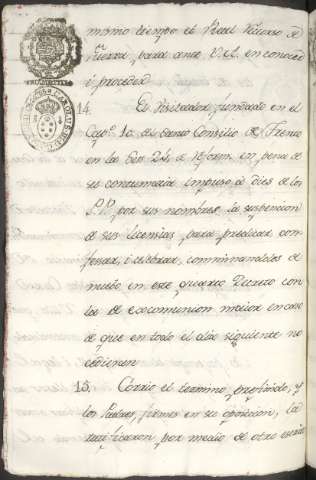 mismo tiempo el Real Recurso de
fuerza, para ante V.A. en conocer
i proceder.
14. El Visitador, fundado en el
Capo. 10 del Santo Concilio de Trento
en la Ses. 24 de reform. en pena de
su contumacia impuso à dies de los
P.P. por sus nombres, la suspencion
de sus licencias para predicar con-
fessar, i celebrar, conminandolos de
nuebo en este quarto Decreto con
la de excomunion maior en caso
de que en todo el dia siguiente no
15. Corrio el termino prefinido, y
los Padres, firmes en su oposicion, la
ratificaron por medio de otro escrito